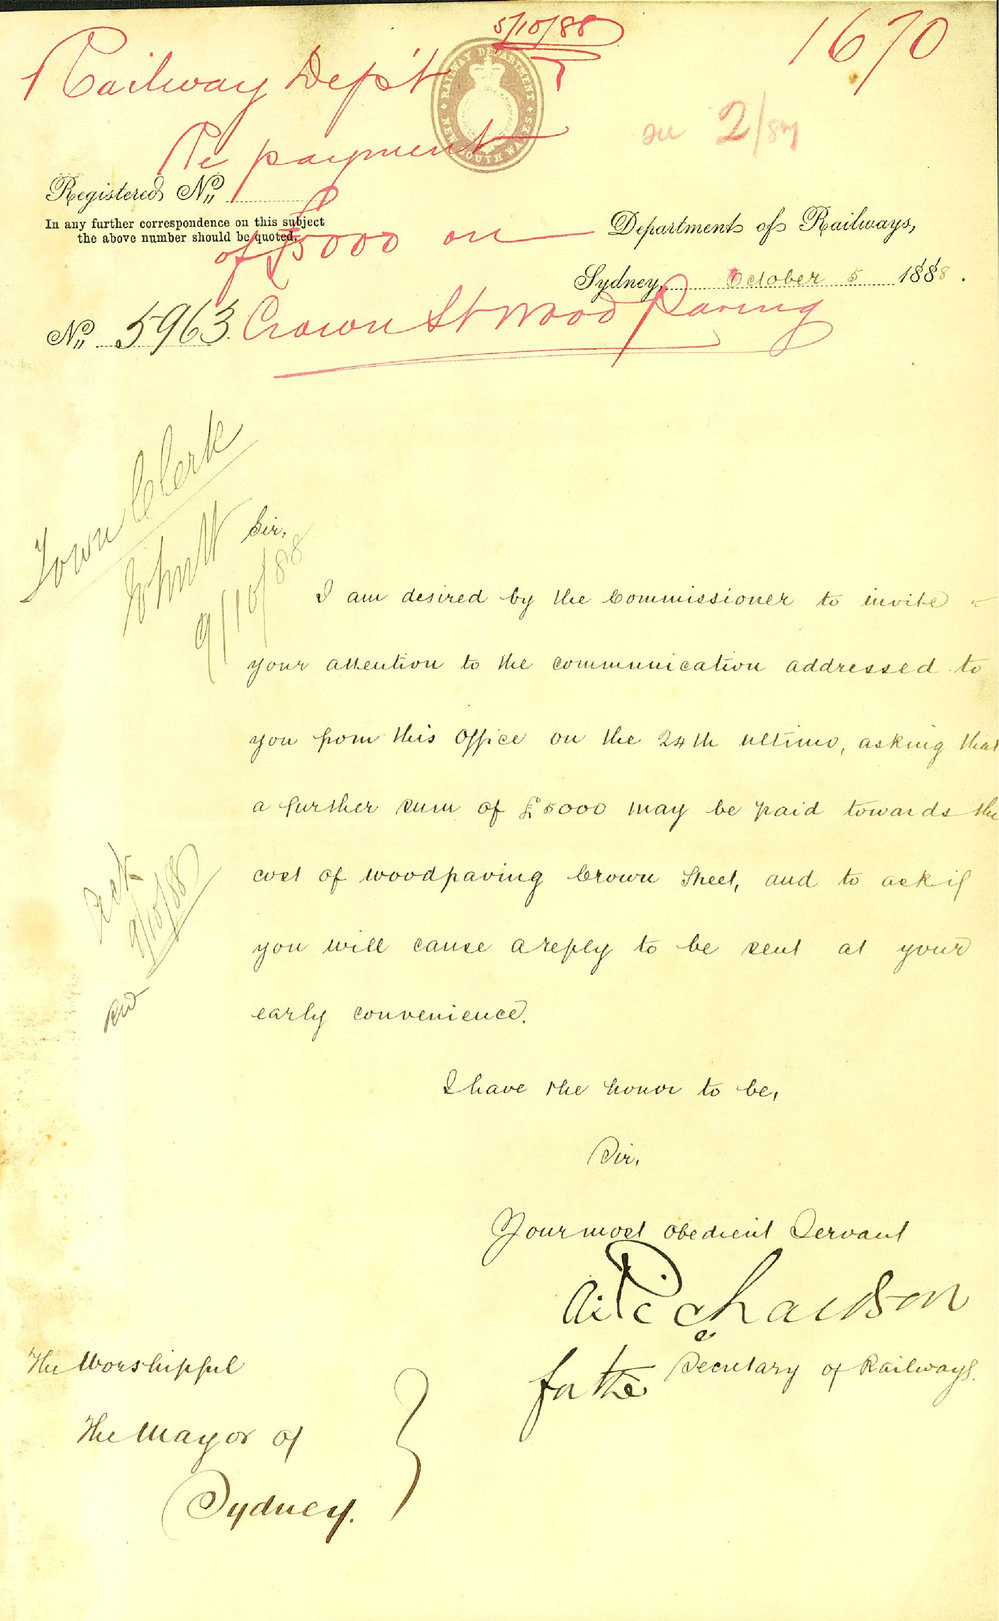 5/10/88
1670
Railway Dep't
RAILWAY DEPARTMENT
NEW SOUTH WALES
2/87
Re payment
Registered No.
In any further correspondence on this subject
the above number should be quoted.
of £5000 on
Department of Railways,
Sydney, October 5 1888.
No. 5963
Crown St Wood Paving
Town Clerk
9/10/88
Sir,
I am desired by the Commissioner to invite
your attention to the communication addressed to
you from this Office on the 24th ultimo, asking that
a further sum of £5000 may be paid towards the
cost of woodpaving Crown Street, and to ask if
you will cause a reply to be sent at your
early convenience.
Ack
9/10/88
I have the honor to be,
Sir,
Your most obedient Servant
Richardson
for the Secretary of Railways.
The Worshipful
The Mayor of
Sydney.